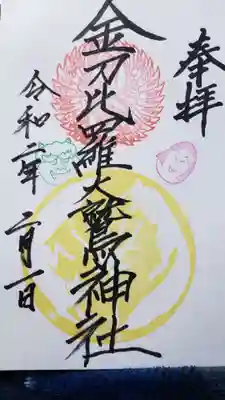 奉拝
金刀比羅大鷲神社
令和二年 二月一日